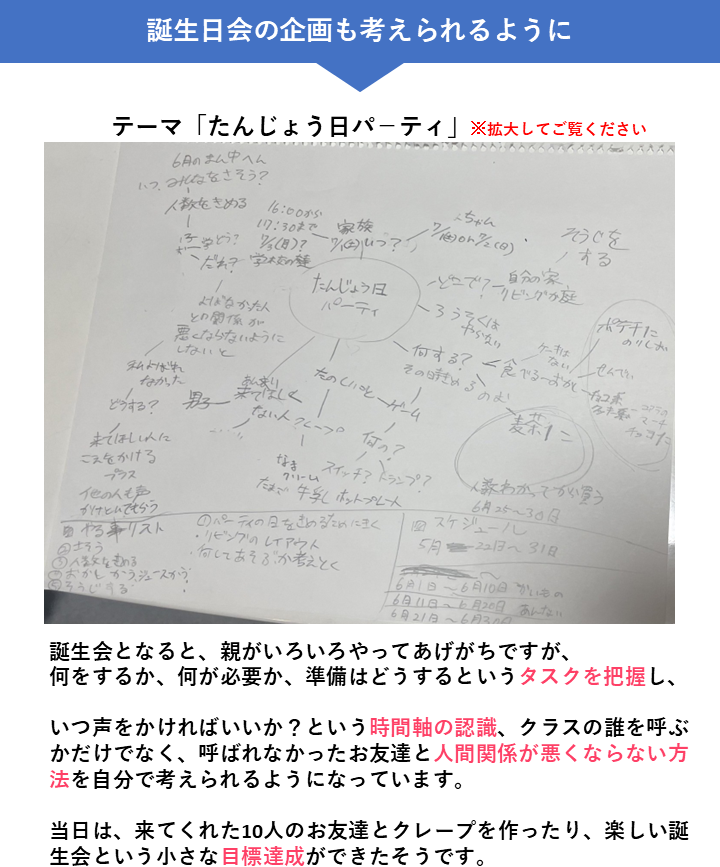 誕生日会の企画も考えられるように
テーマ「たんじょう日パーティ」※拡大してご覧ください
6月のまん中へん
いつ、みんなをさそう?
人数をきめる
だれ?
16:00から
17:30まで
家族
ちゃん
そうじを
する
たんじょう日
パーティ
どこで?
自分の家、
リビングか庭
よばなかった人
との関係が
悪くならないように
しないと
何する?
その時きめる
食べる
おかし
ケーキは
ない
ポテチ
のりしお
せんべい
のむ
麦茶
よばれ
なかった
どうする?
男子
来てほしく
ない人
クレープ
たのしいこと
ゲーム
何の?
スイッチ?トランプ?
来てほしい人に
こえをかける
プラス
他の人も声
なま
クリーム
たまご 牛乳 ホットプレート
人数わかってから買う
6月25〜30日
やる事リスト
さそう
人数をきめる
そうじする
①パーティの日をきめるためにきく
・リビングのレイアウト
・何してあそぶか考えとく
スケジュール
5月
22日〜31日
6月1日〜6月10日 かいもの
6月11日〜6月20日 あんない
6月21日〜6月30日
誕生会となると、親がいろいろやってあげがちですが、
何をするか、何が必要か、準備はどうするというタスクを把握し、
いつ声をかければいいか?という時間軸の認識、クラスの誰を呼ぶ
かだけでなく、呼ばれなかったお友達と人間関係が悪くならない方
法を自分で考えられるようになっています。
当日は、来てくれた10人のお友達とクレープを作ったり、楽しい誕
生会という小さな目標達成ができたそうです。